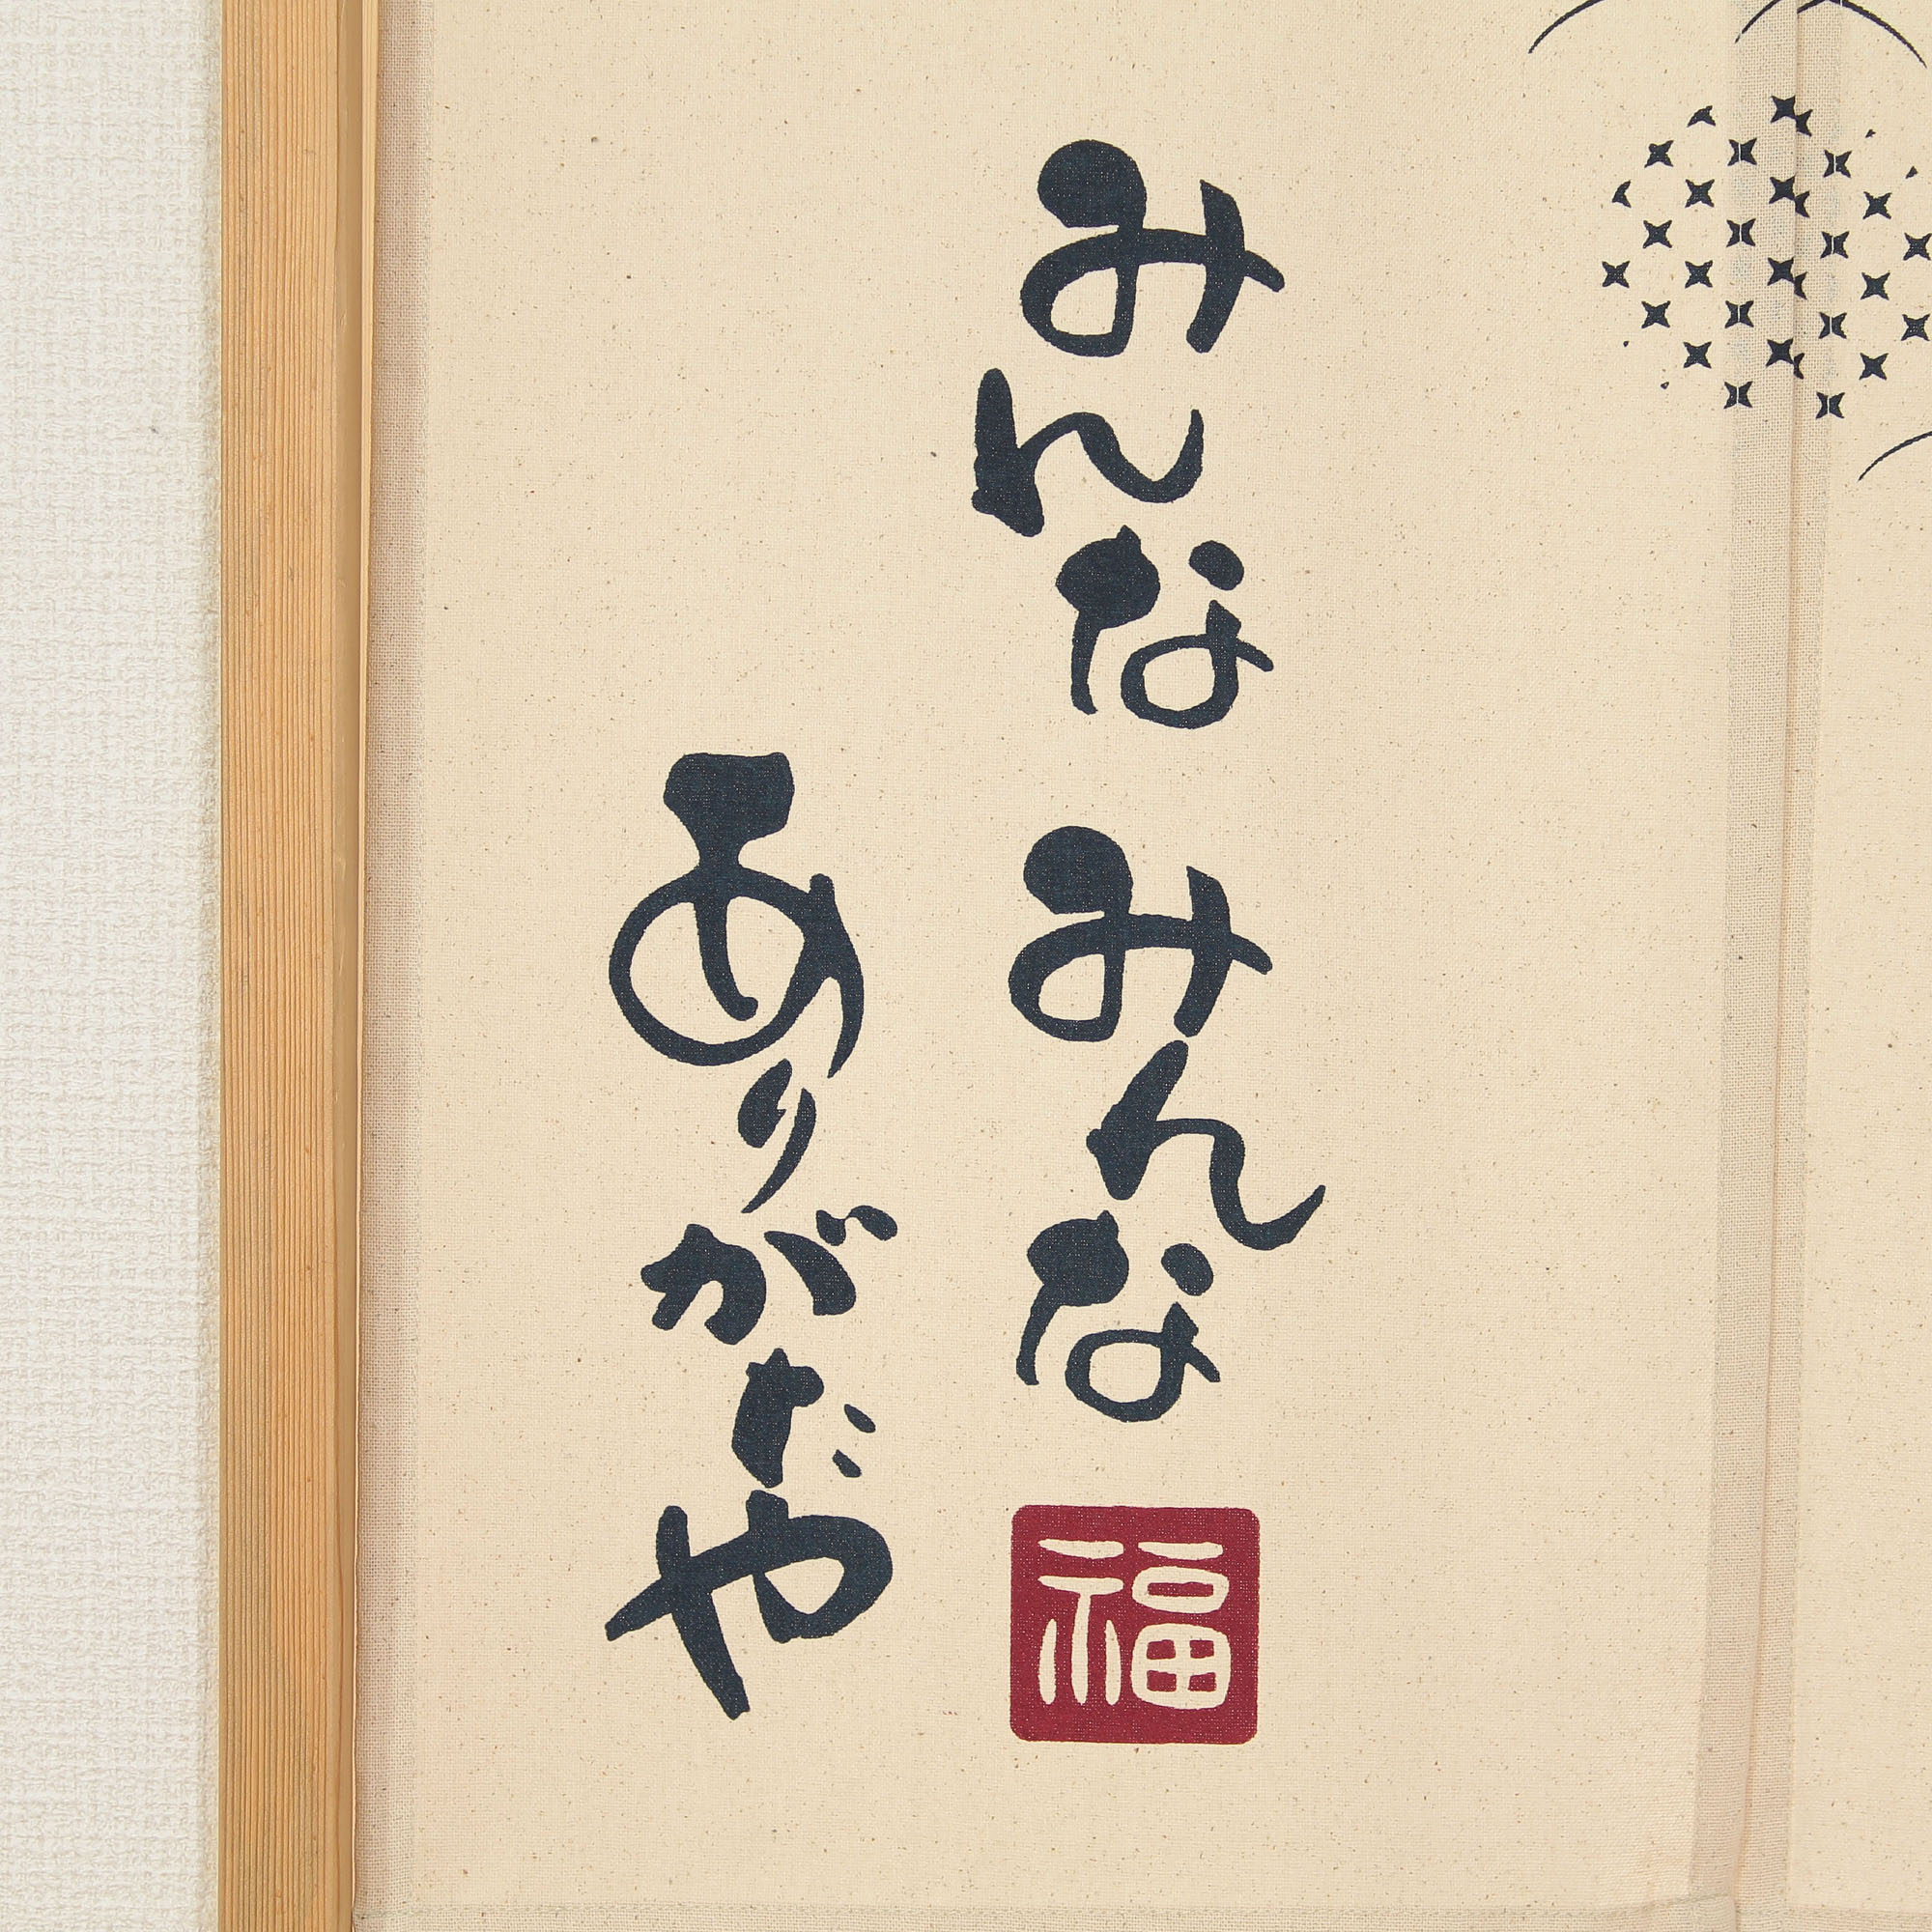 みんなみんな
福
ありがたや